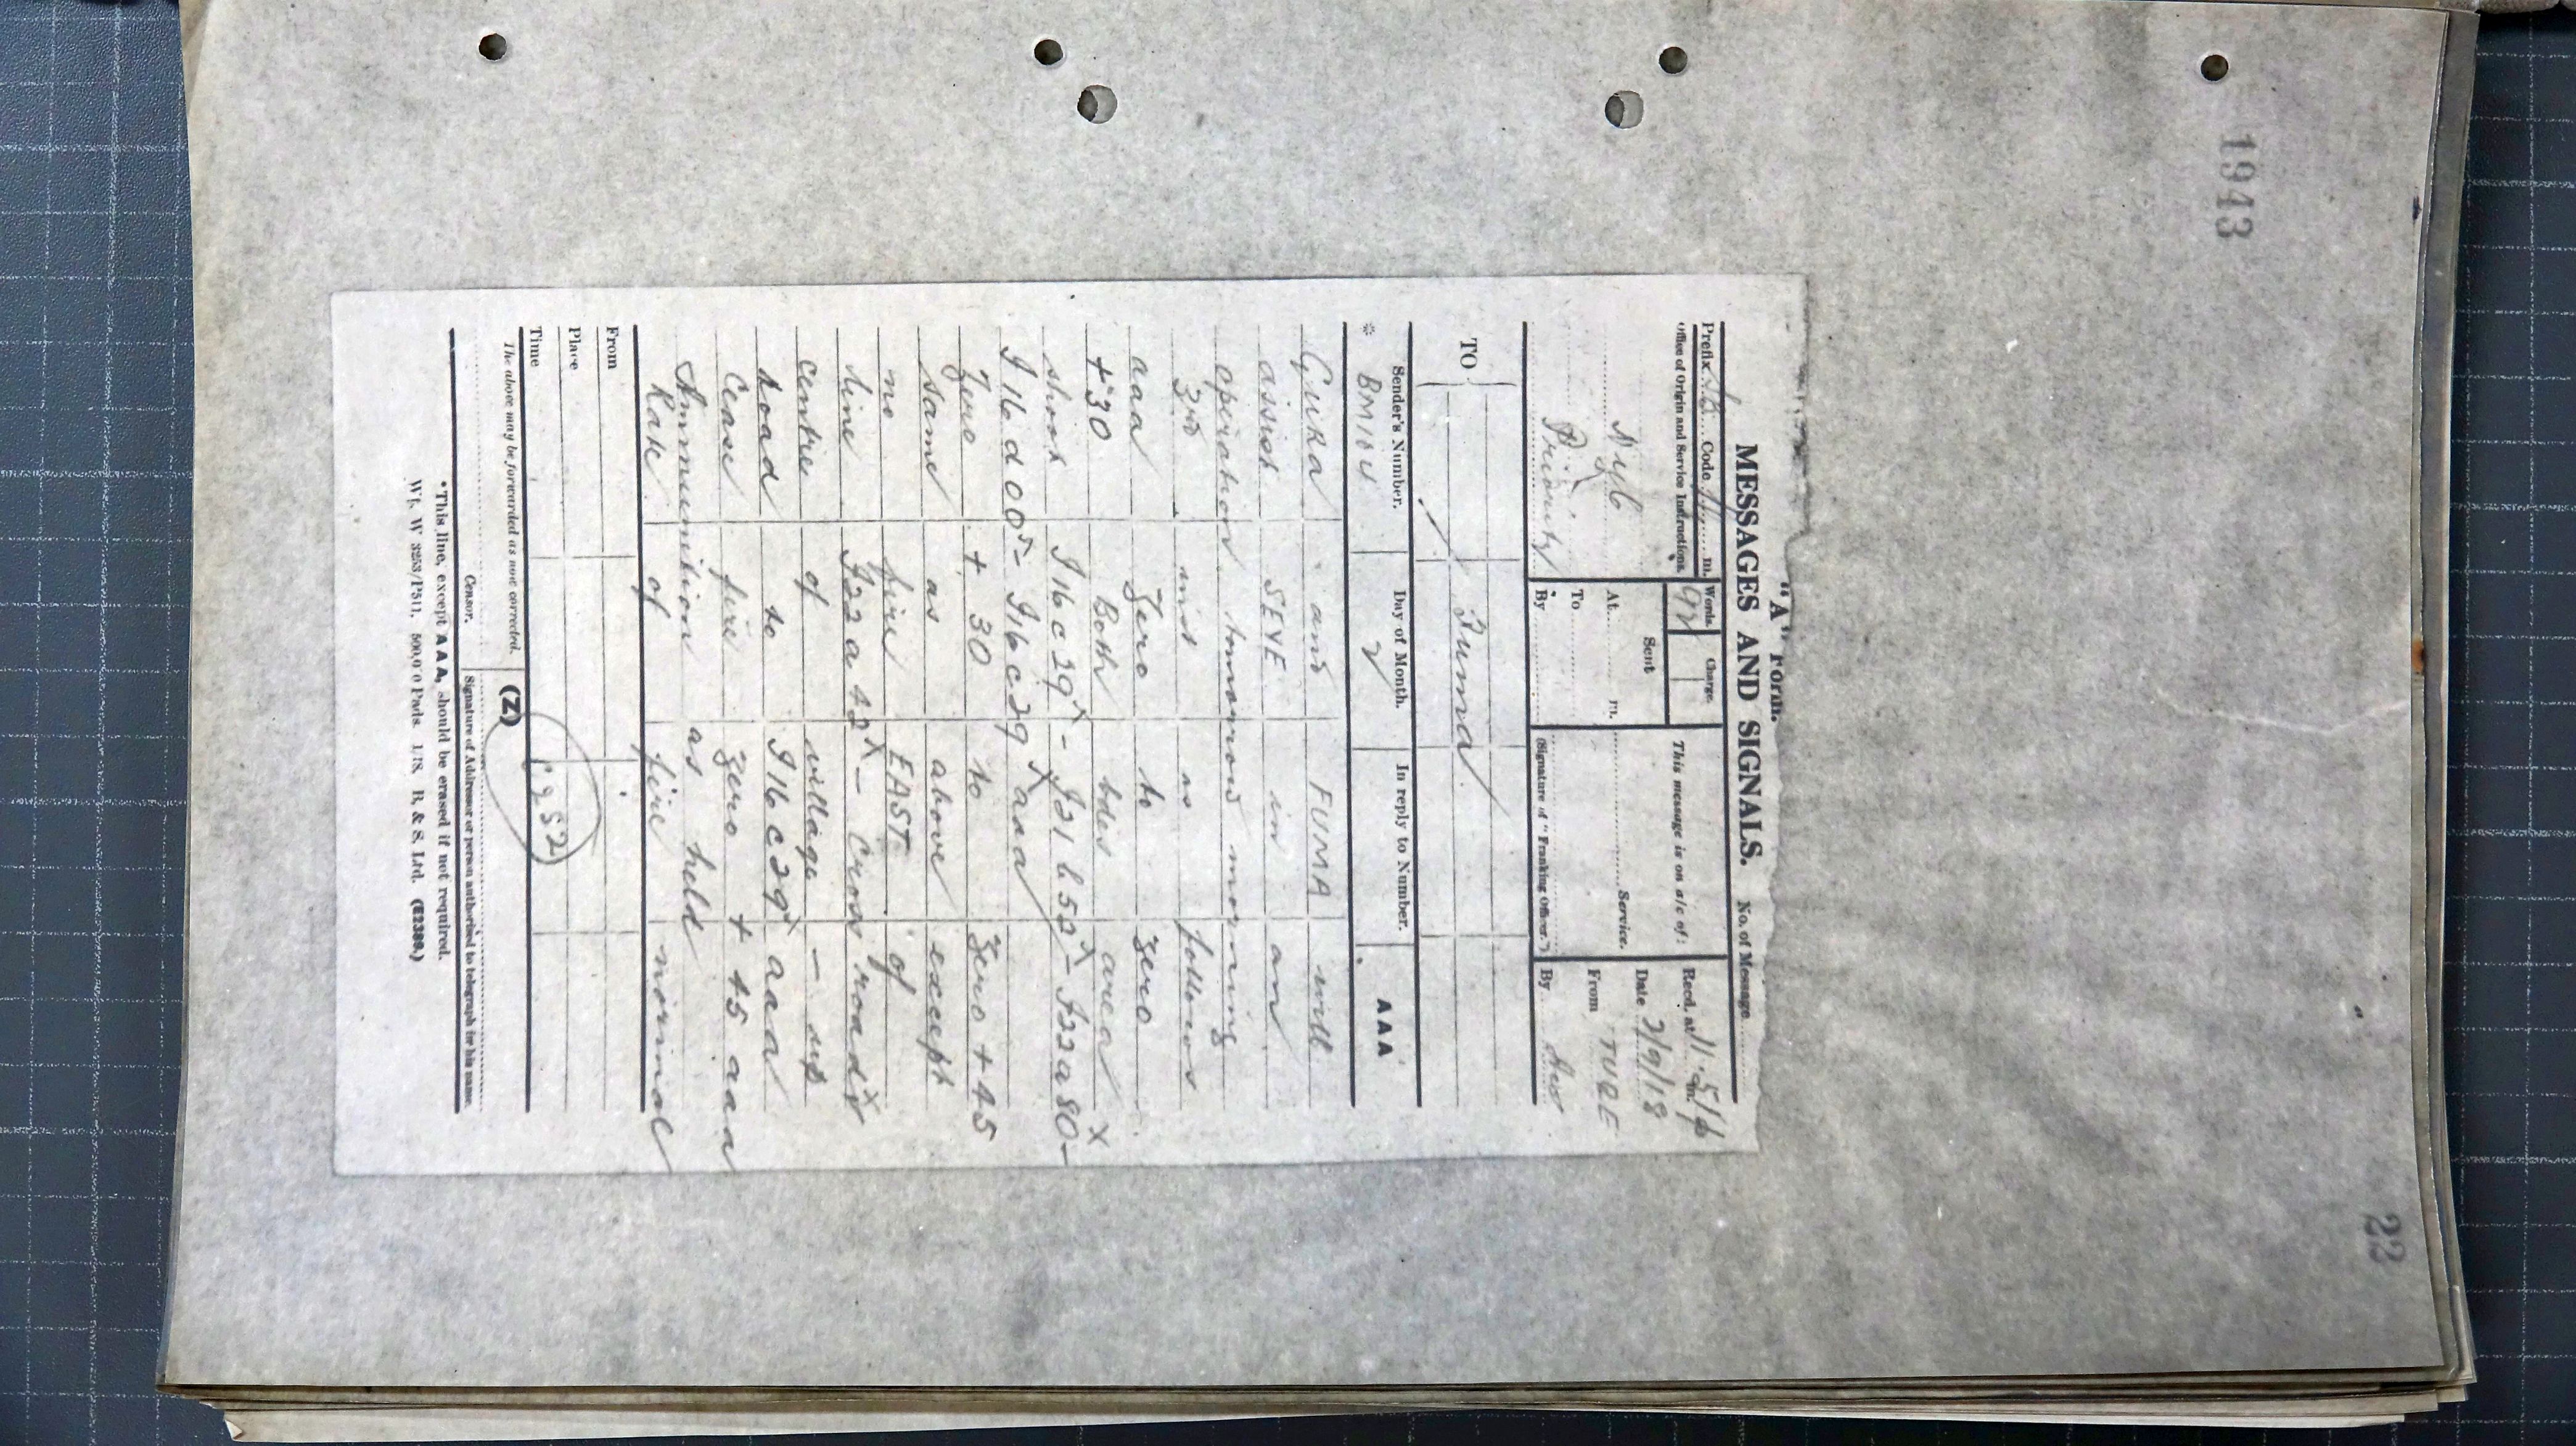 1943
22
"A" Form.
MESSAGES AND SIGNALS. No. of Message
Prefix SB Code m. Words 92 Charge. This message is on a/c of: Recd. at 11.5/p m.
Office of Origin and Service Instructions. Sent Date 2/9/18
At m. Service. From TUBE
Priority To
By (Signature of "Franking Officer.") By
TO Fuma
Sender's Number. Day of Month. In reply to Number. AAA
* BM104 2
Guka and FUMA will
assist SEYE in an
operation tomorrow morning
3rd inst as follows
aaa Zero to zero
+30 Both bdes area X
shoot I16c29 X - I21b52 X - I22a80 -
I16d005 - I16c29 X aaa
Zero + 30 to Zero + 45
same as above except
no fire EAST of
line I22a42 X - Cross roads X
centre of village - up
road to I16c29 X aaa
Cease fire zero + 45 aaa
Ammunition as held
Rate of fire normal
From
Place
Time 1952
The above may be forwarded as now corrected. (Z)
Censor. Signature of Addressor or person authorised to telegraph for his name.
*This line, except AAA, should be erased if not required.
Wt. W 3253/P511. 500,000 Pads. 1/18. B. & S. Ltd. (E2389.)